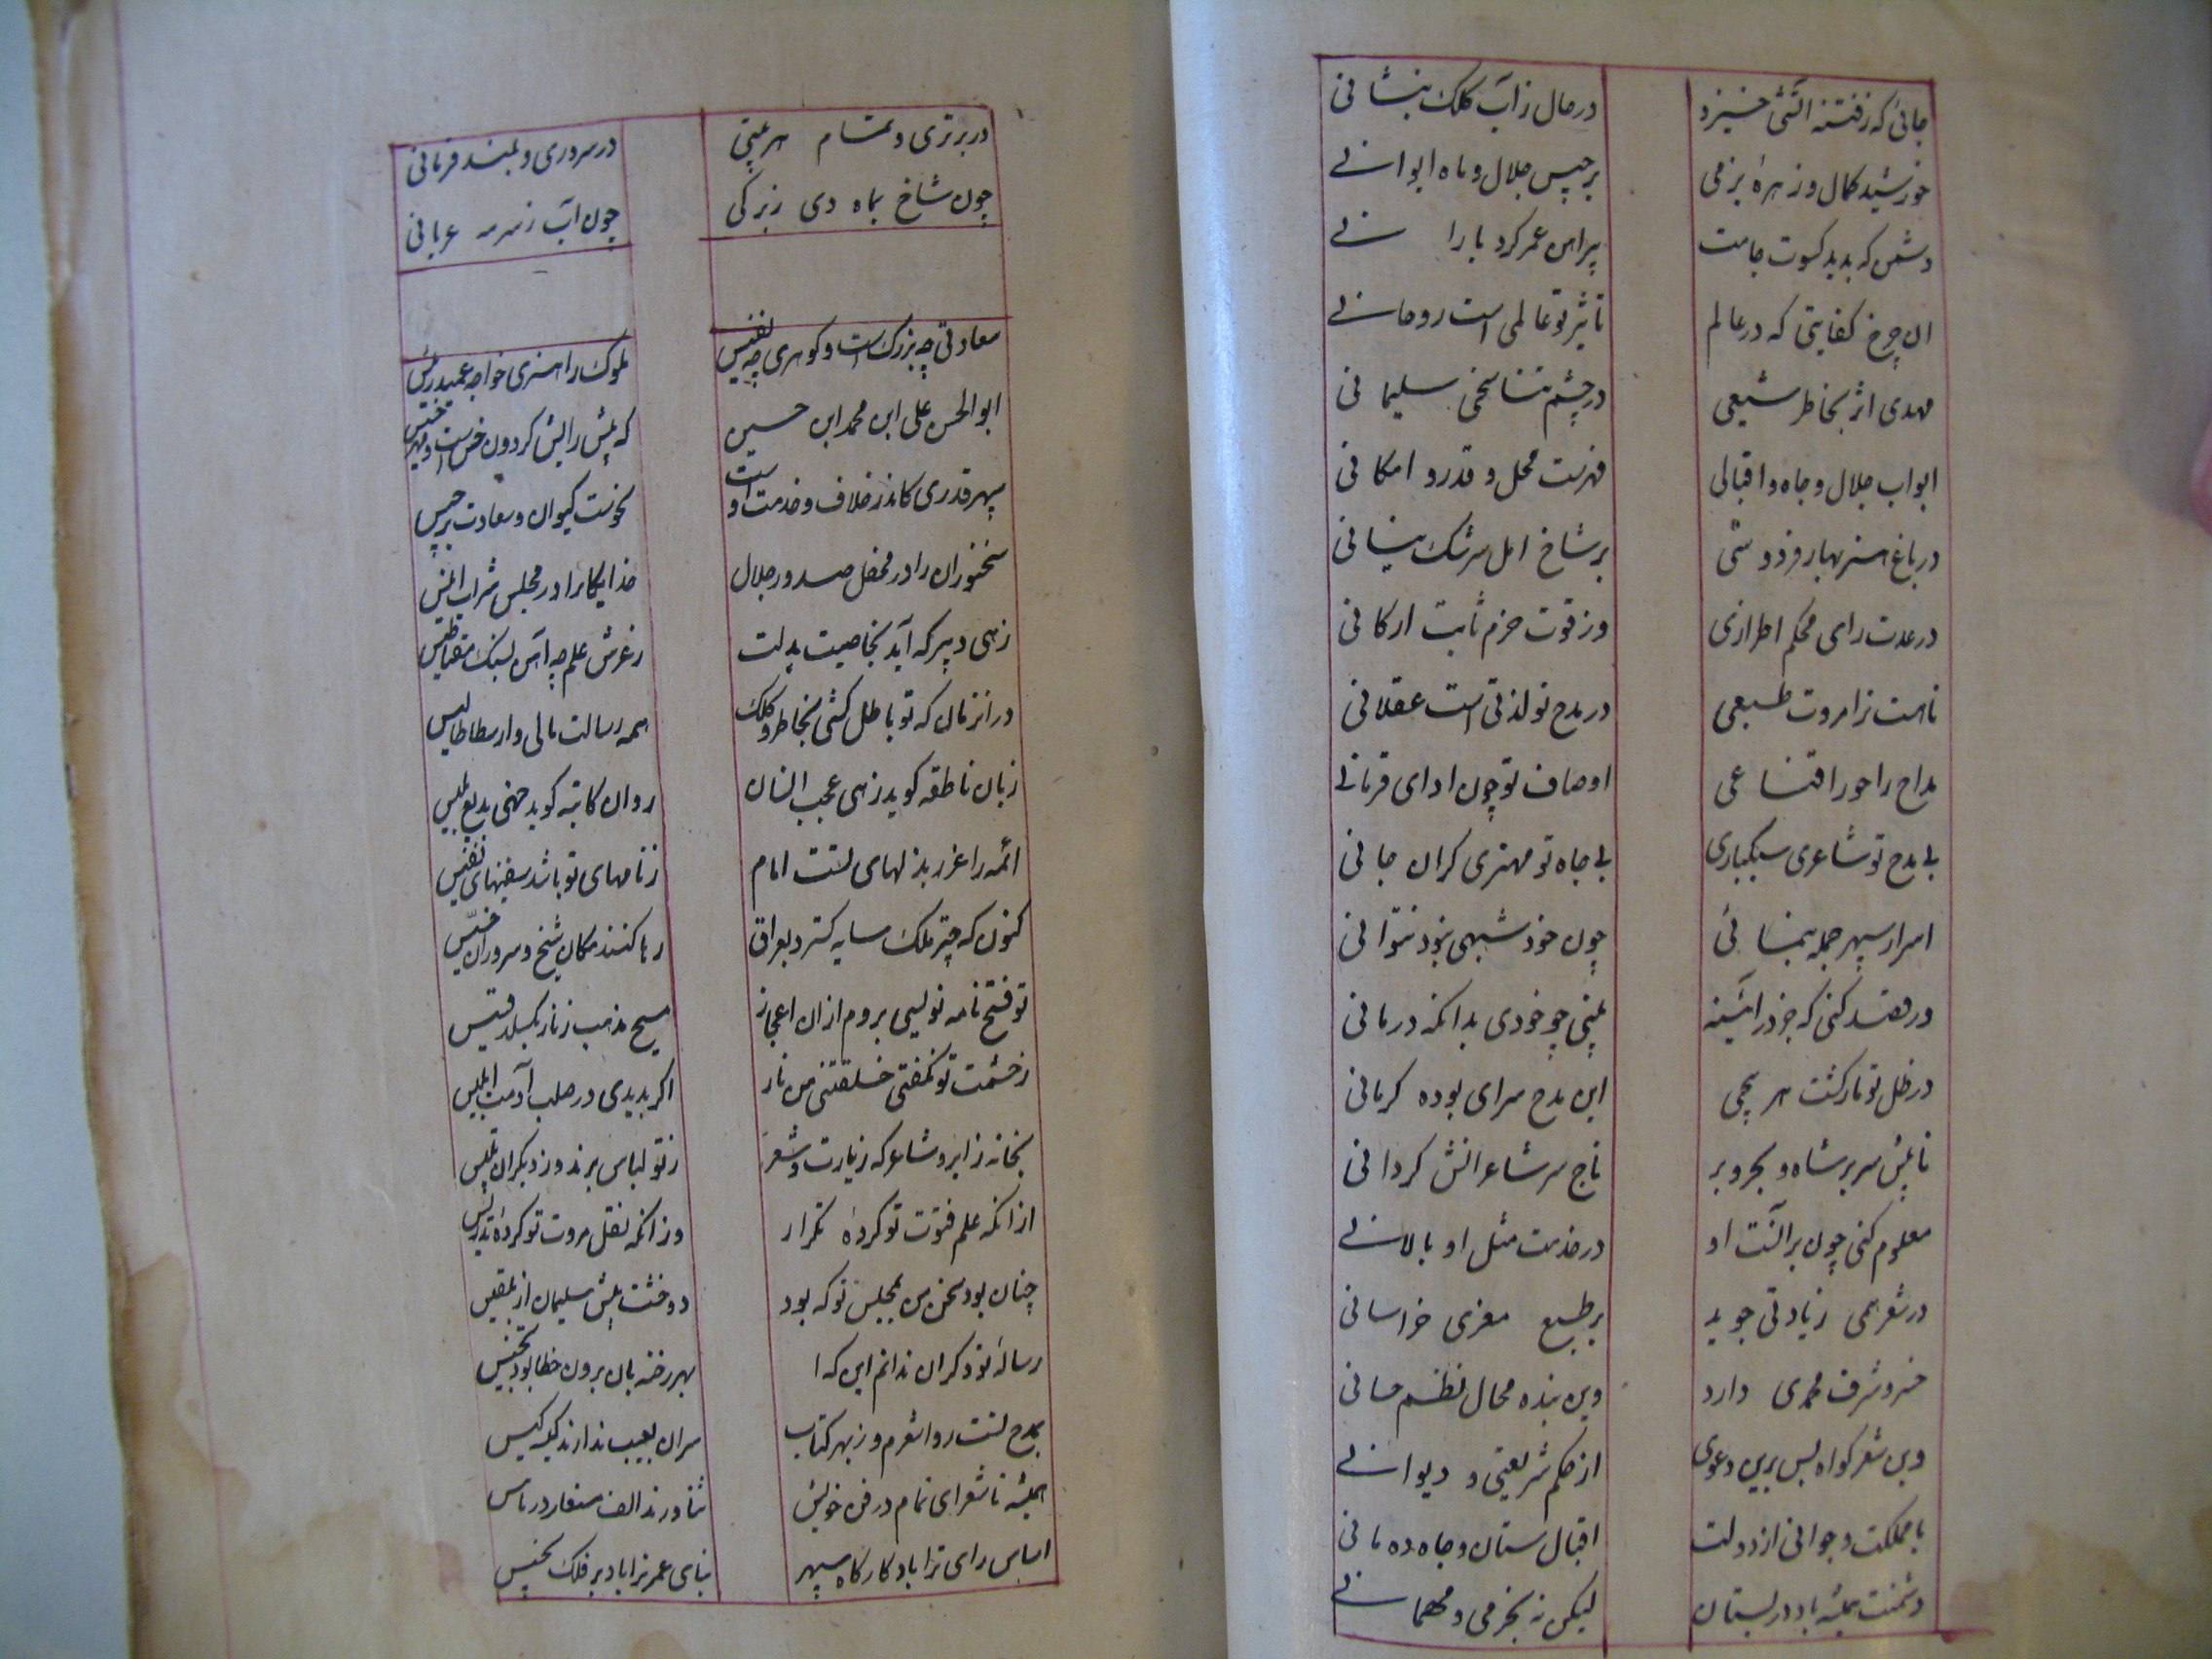 جائی که ز فتنه آتشی خیزد در حال ز آب کلک بنشانی
خورشید کمال و زهرهٔ بزمی برجیس جلال و ماه ایوانی
دشمن که بدید کسوت جاهت پیراهن عمر کرد بارانی
ای چرخ کفایتی که در عالم تاثیر تو عالمی است روحانی
مهدی اثر بخاطر شیعی در چشم تناسخی سلیمانی
ابواب جلال و جاه و اقبالی فهرست محل و قدر و امکانی
در باغ هنر بهار فردوسی بر شاخ امل سرشک نیسانی
در عدت رای محکم اطرازی وز قوت حزم ثابت ارکانی
تا هست ترا مروت طبیعی در مدح تو لذتی است عقلانی
مداح را خور اقتناعی اوصاف تو چون ادای قرآنی
بی مدح تو شاعری سبکباری بی جاه تو مهتری گران جانی
اسرار سپهر جمله بنمائی چون خود شبهی بخود نتوانی
ور قصد کنی که جز در آئینه بینی چو خودی بدانکه درمانی
در ظل تو مار گشت هر این مدح سرای بوده کرمانی
تا پیش سریر شاه و بحر و بر تاج سر شاعرانش گردانی
معلوم کنی چون برآنست او در خدمت مثل او بالانی
در شعر همی زیادتی جوید بر طبع معزی خراسانی
خسرو شرف محمدی دارد وین بنده محال نظم حسانی
وین شعر گواه بس برین دعوی از حکم شریعتی و دیوانی
با مملکت و جوانی از دولت اقبال ستان و جاه ده مانی
دشمنت همیشه باد در بستان لیکن نه بخرمی و مهمانی
در برتری و تمام هر بیتی در سروری و بلند فرمانی
چون شاخ بماه دی ز بر چون آب ز عریانی
معادتی چه بزرگ است و گوهری چه نفیس ملوک را هنری خواجه عمید رئیس
ابوالحسن علی ابن محمد ابن حسین که پیش رایش گردون خس است و مهر خسیس
سپهر قدری کاندر خلاف و خدمت اوست نحوست کیوان و سعادت برجیس
سخنوران را در محفل صدور جلال خدایگانرا در مجلس شراب انیس
زهی دبیر که آید بخاصیت بدلت ز عرش علم چه آهن بسنگ مغناطیس
در آنزمان که تو باطل کشی بخاطر و کلک همه رسالت مالی و ارسطاطالیس
زبان ناطقه گوید زهی عجب انسان روان کاتبه گوید خهی بدیع بلیس
ائمه را غرر بذلهای تست امام ز نامهای تو باشد سفینهای نفیس
کنون که چتر ملک سایه گسترد بعراق رها کنند مکان شیخ و سروران خسیس
تو فتح نامه نویسی بروم از آن اعجاز مسیح مذهب زنار بگسلد قسیس
ز حشمت تو نگفتی خلقتنی من نار اگر بدیدی در صلب آدمت ابلیس
بخانه زایر و شاعر که زیارت و شعر ز تو لباس برند و ز دیگران تلبیس
از آنکه علم فتوت تو کرده تکرار وز آنکه نقل مروت تو کردهٔ تدریس
چنان بود سخن من بمجلس تو که بود دو خشت پیش سلیمان از بلقیس
رسالهٔ تو دگران ندانم این که ا بهر رخنه بان برون خطا بود تجنیس
بمدح تست روا شعرم و ز بهر کتاب سران بعیب ندارند کیس
همیشه تا شعرای تمام در فن خویش الف
اساس رای ترا باد کارگاه سپهر بنای عمر ترا باد بر فلک